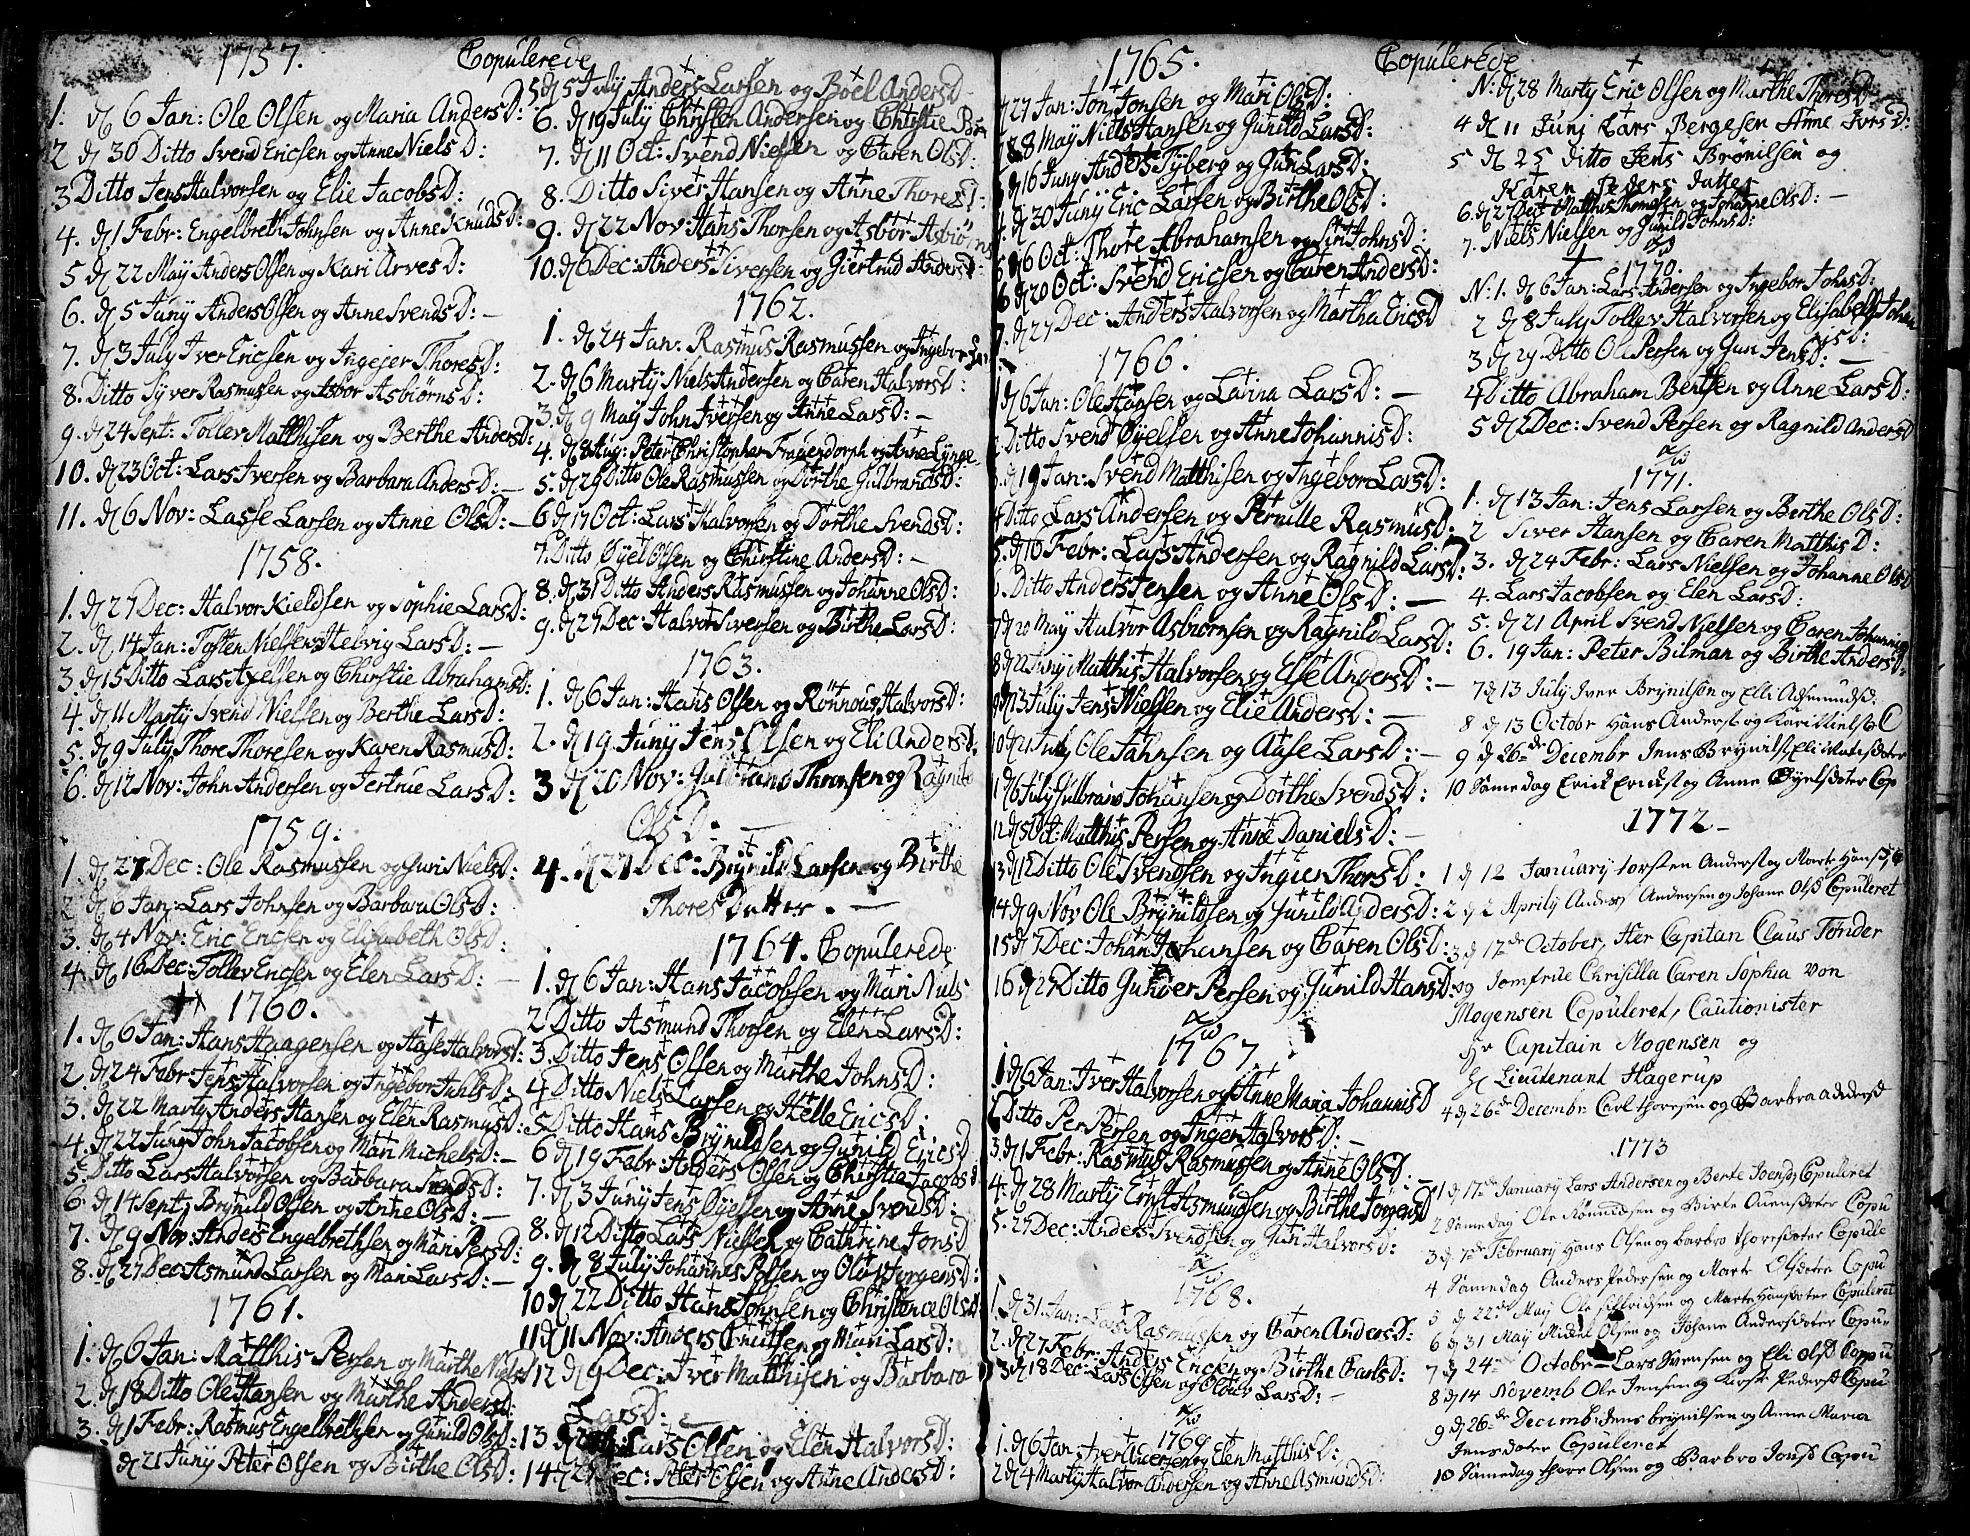 1757. Copulerede
1. dj 6 Jan: Ole Olsen og Maria AndersD:
2 dj 30 Ditto Svend Ericsen og Anne NielsD:
3 Ditto Jens Halvorsen og Elie JacobsD:
4. dj 1 Febr: Engelbreth Johnsen og Anne KnudsD:
5 dj 22 Maÿ Anders Olsen og Kari ArvesD:
6. dj 5 Junÿ Anders Olsen og Anne SvendsD: –
7. dj 3 July Iver Ericsen og Ingejer ThoresD:
8. Ditto Syver Rasmussen og Asbor AsbiørnsD:
9. dj 24 Sept: Tollev Matthisen og Berthe AndersD:
10. dj 23 Oct: Lars Iversen og Barbara AndersD: –
11. dj 6 Nov: Lasse Larsen og Anne OlsD: –
1758.
1. dj 27 Dec: Halvor Kieldsen og Sophie LarsD:
2. dj 14 Jan: Tosten Nielsen Helvig LarsD: –
3. dj 15 Ditto Lars Axelsen og Chirstie AbrahamsD:
4. dj 11 Martÿ Svend Nielsen og Berthe LarsD:
5. dj 9 July Thore Thoresen og Karen RasmusD:
6. dj 12 Nov: John Andersen og Jertrue LarsD:
1759.
1. dj 27 Dec: Ole Rasmussen og Guri NielsD:
2 dj 6 Jan: Lars Johsen og Barbara OlsD:
3. dj 4 Nov: Eric Ericsen og Elisabeth OlsD:
4. dj 16 Dec: Tollev Ericsen og Elen LarsD: –
1760.
1. dj 6 Jan: Hans Haagensen og Aase HalvorsD:
2. dj 24 Febr Jens Halvorsen og Ingebor
3. dj 22 Martÿ Anders Hansen og Elen RasmusD:
4. dj 22 Junÿ John Jacobsen og Mari MichelsD: –
5. Ditto Lars Halvorsen og Barbara SvendsD:
6. dj 14 Sept: Brÿnild Olsen og Anne OlsD: –
7. dj 9 Nov: Anders Engelbrethsen og Mari PersD:
8. dj 27 Dec Asmund Larsen og Mari LarsD: –
1761.
1. dj 6 Jan: Matthis Persen og Marthe Niels
2. dj 18 Ditto Ole Hansen og Marthe AndersD:
3. dj 1 Febr: Rasmus Engelbrethsen og Gunild OlsD:
dj 21 Junÿ Peter Olsen og Birthe OlsD:
5 dj 5 July Anders Larsen og Boel AndersD
6. dj 19 July Christen Andersen og Christie
7. dj 11 Oct: Svend Nielsen og Caren OlsD:
8. Ditto Siver Hansen og Anne ThoresD:
9. dj 22 Nov: Hans Thorsen og Asbor Asbiørns
10. dj 6 Dec: Anders Siversen og Giertrud AndersD:
1762.
1. dj 24 Jan: Rasmus Rasmussen og Ingebor
2. dj 6 Martÿ Niels Andersen og Caren HalvorsD:
3. dj 9 Maÿ John Iversen og Anne LarsD: –
4. dj 8 Aug: Peter Christopher Frauendorph og Anne Lÿnge
5. dj 29 Ditto Ole Rasmussen og Dorthe GulbrandsD:
6 dj 17 Oct: Lars Halvorsen og Dorthe SvendsD:
7. Ditto Øÿel Olsen og Christine AndersD: –
8. dj 31 Ditto Anders Rasmussen og Johanne OlsD:
9. dj 27 Dec: Halvor Siversen og Birthe LarsD:
1763.
1. dj 6 Jan: Hans Olsen og Rønnoug HalvorsD:
2. dj 19 Junÿ Jens Olsen og Eli AndersD.
3 dj 20 Nov: Thoresen og Ragnild
OlsD. –
4. dj 27 Dec: Brÿnild Larsen og Birthe
Thores Datter. –
1764. Copulerede
1. dj 6 Jan: Hans Jacobsen og Mari Niels
2 Ditto Asmund Thorsen og Elen LarsD:
3. Ditto Jens Olsen og Marthe JohnsD:
4 Ditto Niels Larsen og Helle EricsD:
5 Ditto Hans Brÿnildsen og Gunild EricsD
6 dj 19 Febr: Anders Olsen og Christie JacobsD
7. dj 3 Junÿ Jens Øÿelsen og Anne SvendsD:
8. dj 12 Ditto Lars Nielsen og Cathrine JonsD
9. dj 8 July Johannes Polsen og Olou JørgensD:
10 dj 22 Ditto Hans Johnsen og Christence OlsD
11 dj 11 Nov: Anders Cnutsen og Mari LarsD:
12 dj 9 Dec: Iver Matthisen og Barbara
LarsD: –
13 Lars Olsen og Elen HalvorsD:
14 dj 27 Dec: Peter Olsen og Anne AndersD:
1765. Copulerede
dj 27 Jan: Jon Jonsen og Mari OlsD:
28 Maÿ Niels Hansen og Gunild LarsD:
dj 16 Junÿ Anders Tÿberg og Guri LarsD:
dj 30 Junÿ Eric Larsen og Birthe OlsD:
dj 6 Oct: Thore Abrahamsen og Siri JohnsD:
6 dj 20 Oct: Svend Ericsen og Caren AndersD:
7. dj 27 Dec: Anders Halvorsen og Martha EricsD
1766.
dj 6 Jan: Ole Hansen og Larina LarsD: –
Ditto Svend Øÿelsen og Anne JohannisD:
dj 19 Jan: Svend Matthisen og Ingebor LarsD:
4 Ditto Lars Andersen og Pernille RasmusD:
5. dj 10 Febr: Lars Andersen og Ragnild LarsD:
Ditto Anders Jensen og Anne OlsD: –
7 dj 20 Maÿ Halvor Asbiørnsen og Ragnild LarsD:
8 dj 22 Junÿ Matthis Halvorsen og Else AndersD: –
9 dj 13 July Jens Nielsen og Elie AndersD: –
10 dj 21 July Ole Jahnsen og Aase LarsD: –
dj 6 July Gulbrand Johansen og Dorthe SvendsD:
12 dj 5 Oct: Matthis Persen og Anne DanielsD: –
13 dj 12 Ditto Ole Svendsen og Ingier ThorsD:
14 dj 9 Nov Ole Brÿnildsen og Gunild AndersD:
15 dj 7 Dec: Johan Johansen og Caren OlsD:
16 dj 27 Ditto Gunder Persen og Gunild HansD:
1767.
1 dj 6 Jan: Iver Halvorsen og Anne Maria JohannisD
2 Ditto Per Persen og Inger HalvorsD: –
3. dj 1 Febr: Rasmus Rasmussen og Anne OlsD: –
4. dj 28 Martÿ Ernst Asmundsen og Birthe JørgensD
5. 27 Dec: Anders Svendsen og Guri HalvorsD:
1768.
1. dj 31. Jan: Lars Rasmussen og Caren AndersD:
2. dj 27 Febr: Anders Ericsen og Birthe CarlsD:
3 dj 18 Dec: Lars Olsen og Olour LarsD: –
1769
1. dj 6 Jan: Iver og Elen MatthisD:
2 dj 4 Martÿ Halvor Andersen og Anne AsmundsD:
N: dj 28 Martÿ Eric Olsen og Marthe ThoresD
4 dj 11 Junj Lars Bergesen Anne IversD:
5 dj 25 Ditto Jens Brønilsen og
Karen Peders datter
6. dj 27 Dec: Matthis Thomesen og Johanne OlsD: –
7. Niels Nielsen og Gunild JohnsD:
1770.
N: 1. dj 6 Jan: Lars Andersen og Ingebor JohnsD:
2 dj 8 July Tollev Halvorsen og Elisabeth Johan
3 dj 29 Ditto Ole Persen og Guri JensD: –
4 Ditto Abraham Bertsen og Anne LarsD:
5 dj 2 Dec: Svend Persen og Ragnild AndersD
1771.
1. dj 13 Jan: Jens Larsen og Berthe OlsD:
2 Siver Hansen og Caren MatthisD:
3. dj 24 Febr: Lars Nielsen og Johanne OlsD
4. Lars Jacobsen og Elen LarsD:
5. dj 21 April Svend Nielsen og Caren Johannis
6. 19 Jan: Peter Bilman og Birthe AndersD:
7 dj 13 July Iver Brÿnilsen og Elli Asmundsd.
8 dj 13 Octobr Hans Anderst og Kari Nielsd C
9 dj 26de Decembr Jens Brÿnilst Eli Matisdoter
10 Samedag Erick Erickst og Anne Øÿelsdoter Cop
1772 –
1 dj 12 Januarÿ torsten Anderst og Marte Hansd
2 dj 2 Aprilÿ Anders Andersen og Johane Olsd Copuleret
3 dj 17de October, Her Capitan Claus Tønder
og Jomfrue Chrisilla Caren Sophia von
Mogensen Copuleret, Cautionister
Hr Capitain Mogensen og
Hr Lieutenant Hagerup
4 dj 26de Decembr Carl thoresen og Barbra adersd
1773
1 dj 17de Januarÿ Lars Andersen og Berte Svendsd Copuleret
2 Samedag Ole Rønnildsen og Birte Auensdoter Copu
3 dj 7de Februarÿ Hans Olsen og barbro thoresdoter Copule
4 Samedag Anders Pedersen og Marte Olsdoter Copu
5 dj 22de Maÿ Ole og Marte Hansdoter Copuleret
6 dj 31 Maÿ Mickel Olsen og Johane Andersdoter Copu
7 dj 24 Octobr Lars Svensen og Eli Olsd Coppu
8 dj 14 Novemb Ole Jensen og Kirste Pedersd Copu
9 dj 26de Decimb: Jens brÿnilsen og Anne Maria
Jensdoter Copuleret
10 Samedag thore Olsen og Barbro Jonsd Copu